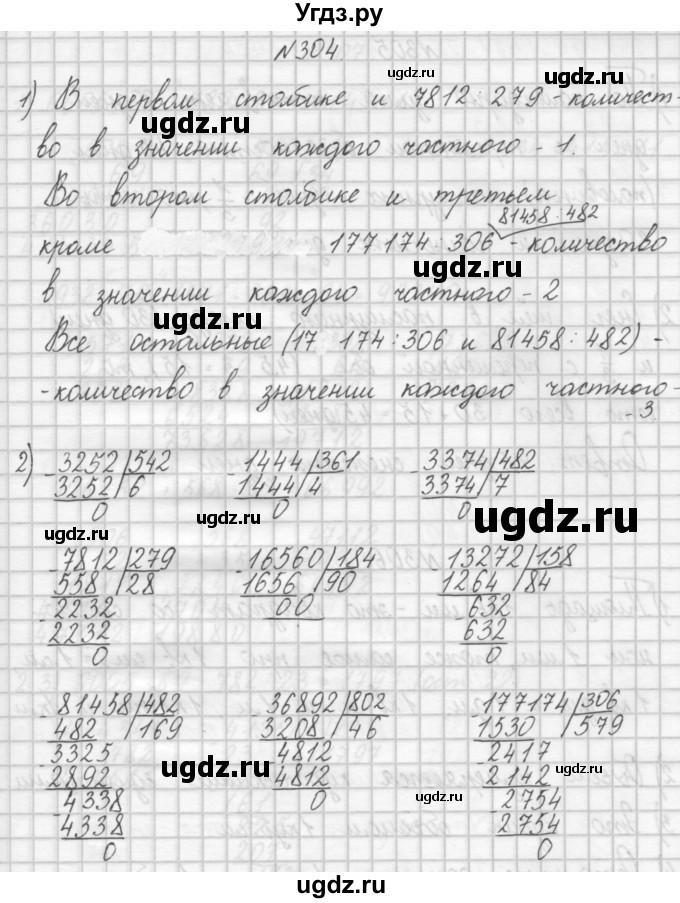 Угдз.ру
N304.
1) В первом столбике и 7812:279 - количест-
во в значении каждого частного - 1.
Во втором столбике и третьем
81458:482
кроме 177174:306 - количество
в значении каждого частного - 2
Все остальные (17 174:306 и 81458:482) -
- количество в значении каждого частного -
- 3.
2) 3252 542 1444 361 3374 482
3252 6 1444 4 3374 7
0 0 0
7812 279 16560 184 13272 158
558 28 1656 90 1264 84
2232 00 632
2232 632
0 0
81458 482 36892 802 177174 306
482 169 3208 46 1530 579
3325 4812 2417
2892 4812 2142
4338 0 2754
4338 2754
0 0
ugdz.ru
ugdz.ru
ugdz.ru
ugdz.ru
ugdz.ru
ugdz.ru
ugdz.ru
ugdz.ru
ugdz.ru
ugdz.ru
ugdz.ru